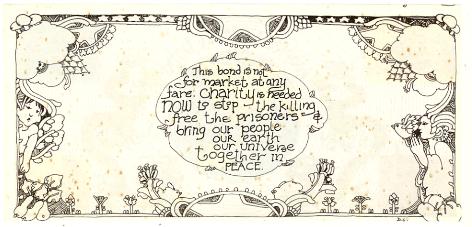 This bond is not
for market at any
fare. Charity is needed
NOW to stop - the killing
free the prisoners &
bring our people
our earth
our universe
together in
PEACE.